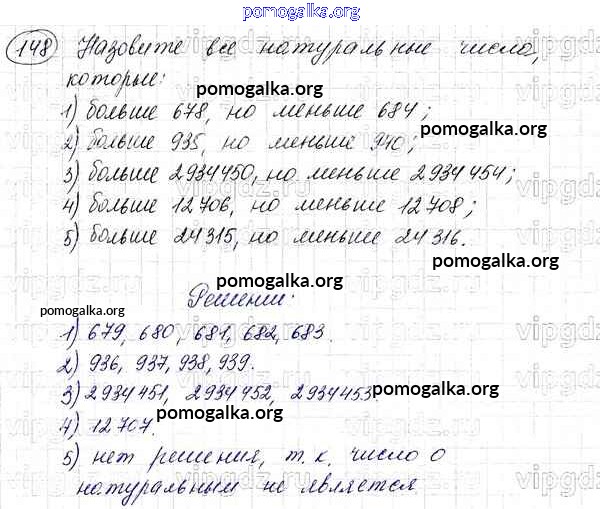 pomogalka.org
148 Назовите все натуральные числа,
которые:
pomogalka.org
1) больше 678, но меньше 684;
pomogalka.org
2) больше 935, но меньше 940;
3) больше 2934450, но меньше 2934454;
4) больше 12706, но меньше 12708;
5) больше 24315, но меньше 24316.
pomogalka.org
pomogalka.org
Решении:
pomogalka.org
1) 679, 680, 681, 682, 683.
pomogalka.org
2) 936, 937, 938, 939.
3) 2934451, 2934452, 2934453.
pomogalka.org
pomogalka.org
4) 12707.
5) нет решения, т.к. число 0
pomogalka.org
натуральным не является